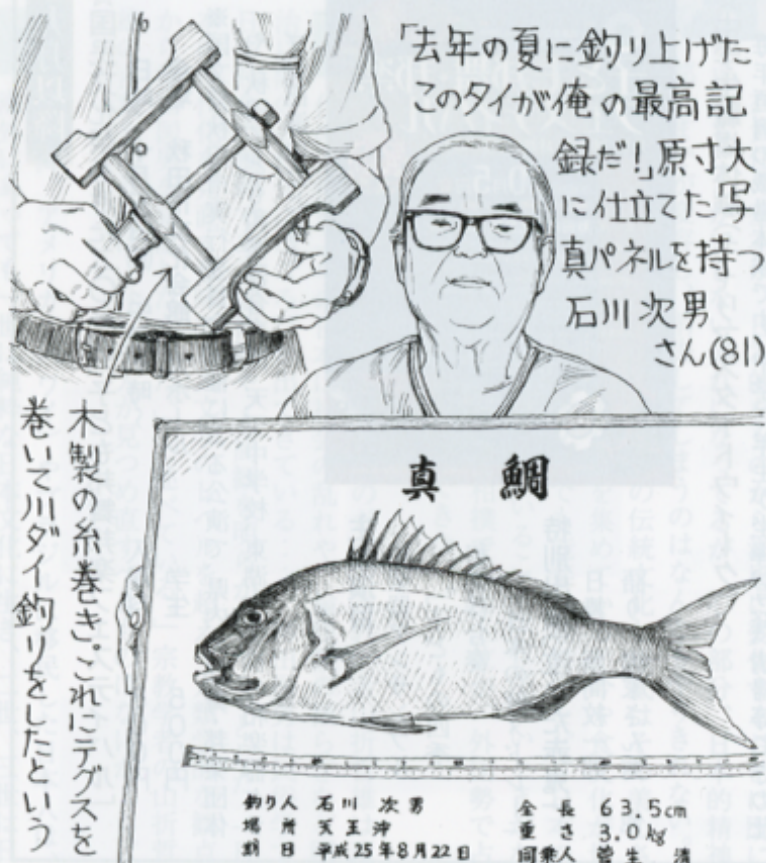 「去年の夏に釣り上げた
このタイが俺の最高記
録だ!」原寸大
に仕立てた写
真パネルを持つ
石川次男
さん(81)
木製の糸巻き。これにテグスを
巻いて川ダイ釣りをしたという
真 鯛
釣り人 石川 次男
場所 天王沖
期日 平成25年8月22日
全長 63.5cm
重さ 3.0kg
同乗人 菅生 清